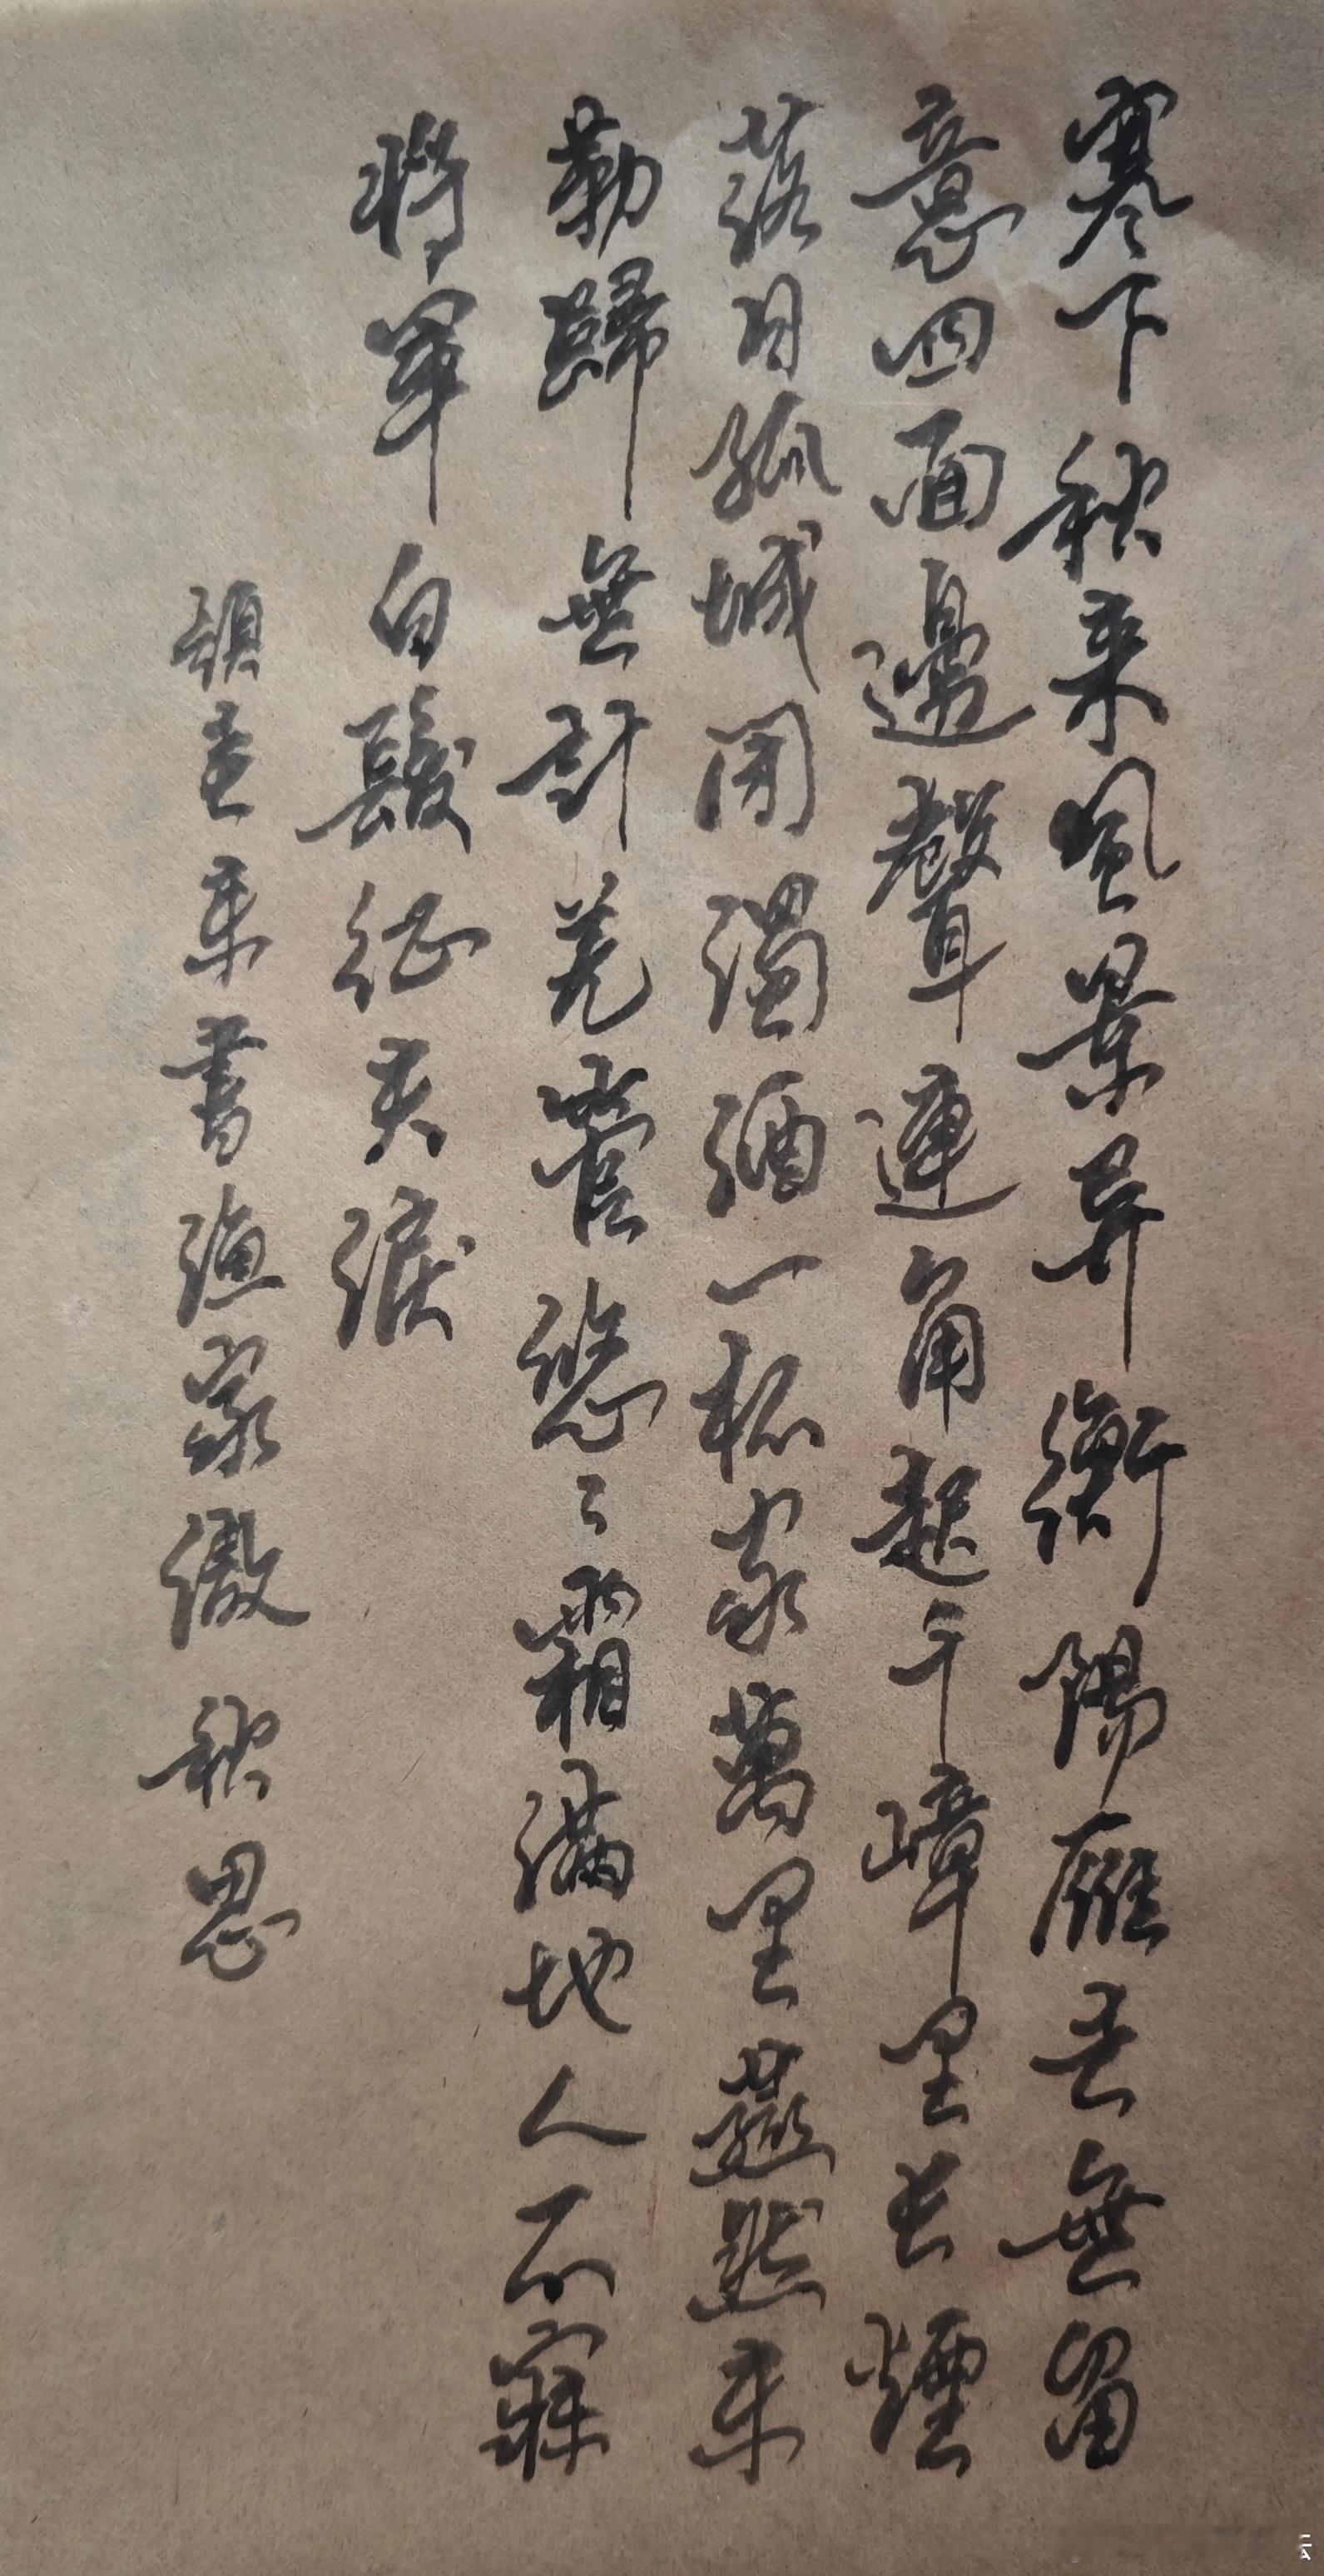 寒下秋来風景異衡陽雁去無留
意四面邊聲連角起千嶂里长煙
落日孤城閉濁酒一杯家萬里燕然未
勒歸無計羌管悠々霜滿地人不寐
將軍白髮征夫淚
書漁家傲秋思